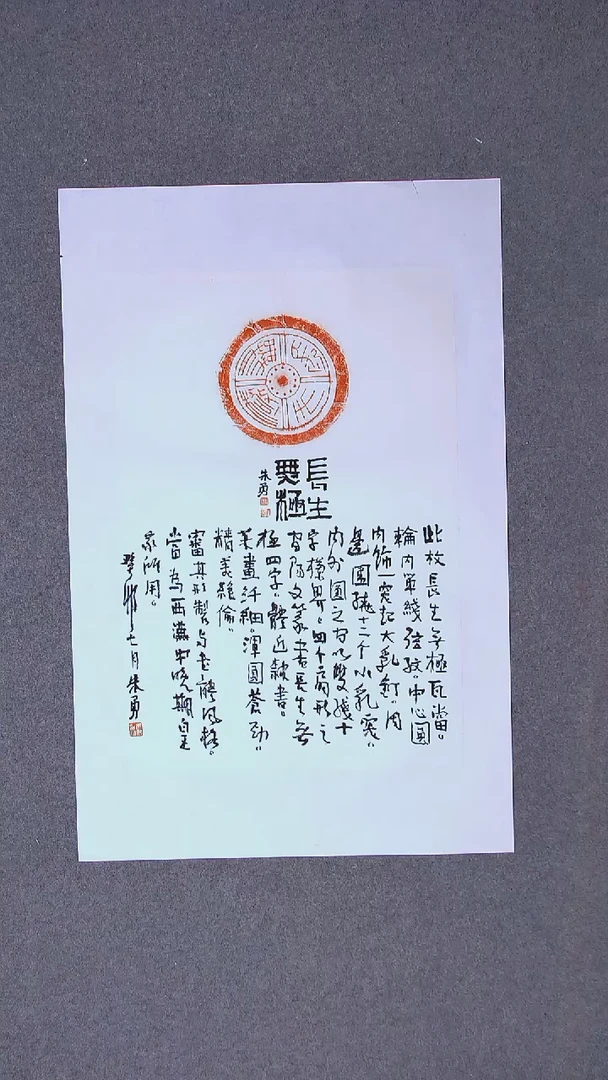 長生
無極
朱勇
此枚長生无極瓦當。
輪内單綫弦紋。中心圓
内飾一突起大乳釘。周
邊圍繞十二个小乳突。
内外圓之間以雙綫十
字界四个扇形之
陽文篆書長生无
極四字。體近隸書。
筆畫纤細。渾圓蒼勁。
精美絕倫。
審其形製与書體風格。
當為西漢中晚期皇
家所用。
癸卯七月朱勇